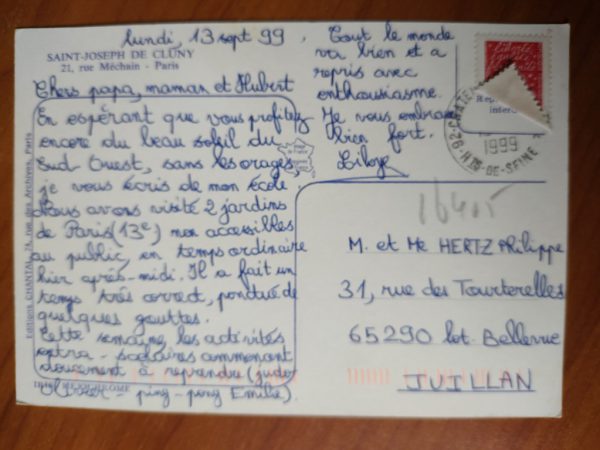 lundi, 13 sept 99.
SAINT-JOSEPH DE CLUNY
21, rue Méchain - Paris
Chers papa, maman et Hubert
En espérant que vous profitez
encore du beau soleil du
Sud Ouest, sans les orages,
je vous écris de mon école.
Nous avons visité 2 jardins
de Paris (13e) non accessibles
au public, en temps ordinaire
hier après-midi. Il a fait un
temps très correct, ponctué de
quelques gouttes.
Cette semaine les activités
extra-scolaires commencent
doucement à reprendre (judo
Olivier - ping-pong Emilie).
Tout le monde
va bien et a
repris avec
enthousiasme.
Je vous embrasse
bien fort.
Editions CHANTAL, 74, rue des Archives, Paris
1999
-DE-SEINE
16405
M. et Me HERTZ Philippe
31, rue des Tourterelles
65290 lot. Bellevue
JUILLAN